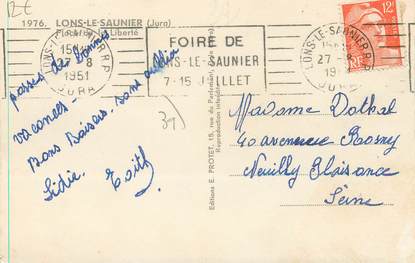 12€
1976. LONS-LE-SAUNIER (Jura)
Liberté
LONS-LE-SAUNIER R.P.
15H
8
1951
JURA
FOIRE DE
LONS-LE-SAUNIER
7-15 JUILLET
LONS-LE-SAUNIER R.P.
27-
19
JURA
12F
RF
passez de bonnes
vacances
Bons Baisers sans oublier
Lidie. Edith
39
Editions E. PROTET, 15, rue du Parlement,
Reproduction interdite
Madame Dothal
40 avenue Rosny
Neuilly Plaisance
Seine